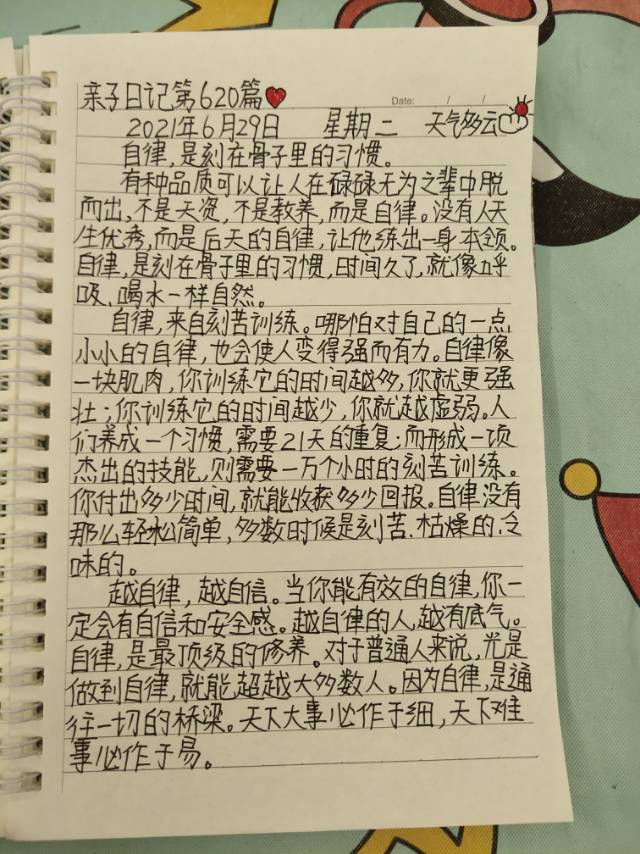 亲子日记第620篇
Date: / /
2021年6月29日 星期二 天气多云
自律,是刻在骨子里的习惯。
有种品质可以让人在碌碌无为之辈中脱
而出,不是天资,不是教养,而是自律。没有人天
生优秀,而是后天的自律,让他练出一身本领。
自律,是刻在骨子里的习惯,时间久了,就像呼
吸、喝水一样自然。
自律,来自刻苦训练。哪怕对自己的一点
小小的自律,也会使人变得强而有力。自律像
一块肌肉,你训练它的时间越多,你就更强
壮;你训练它的时间越少,你就越虚弱。人
们养成一个习惯,需要21天的重复;而形成一项
杰出的技能,则需要一万个小时的刻苦训练。
你付出多少时间,就能收获多少回报。自律没有
那么轻松简单,多数时候是刻苦、枯燥的、冷
味的。
越自律,越自信。当你能有效的自律,你一
定会有自信和安全感。越自律的人,越有底气。
自律,是最顶级的修养。对于普通人来说,光是
做到自律,就能超越大多数人。因为自律,是通
往一切的桥梁。天下大事必作于细,天下难
事必作于易。